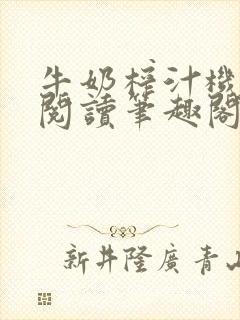 牛奶榨汁機
閱讀筆趣閣
新井隆廣 青山